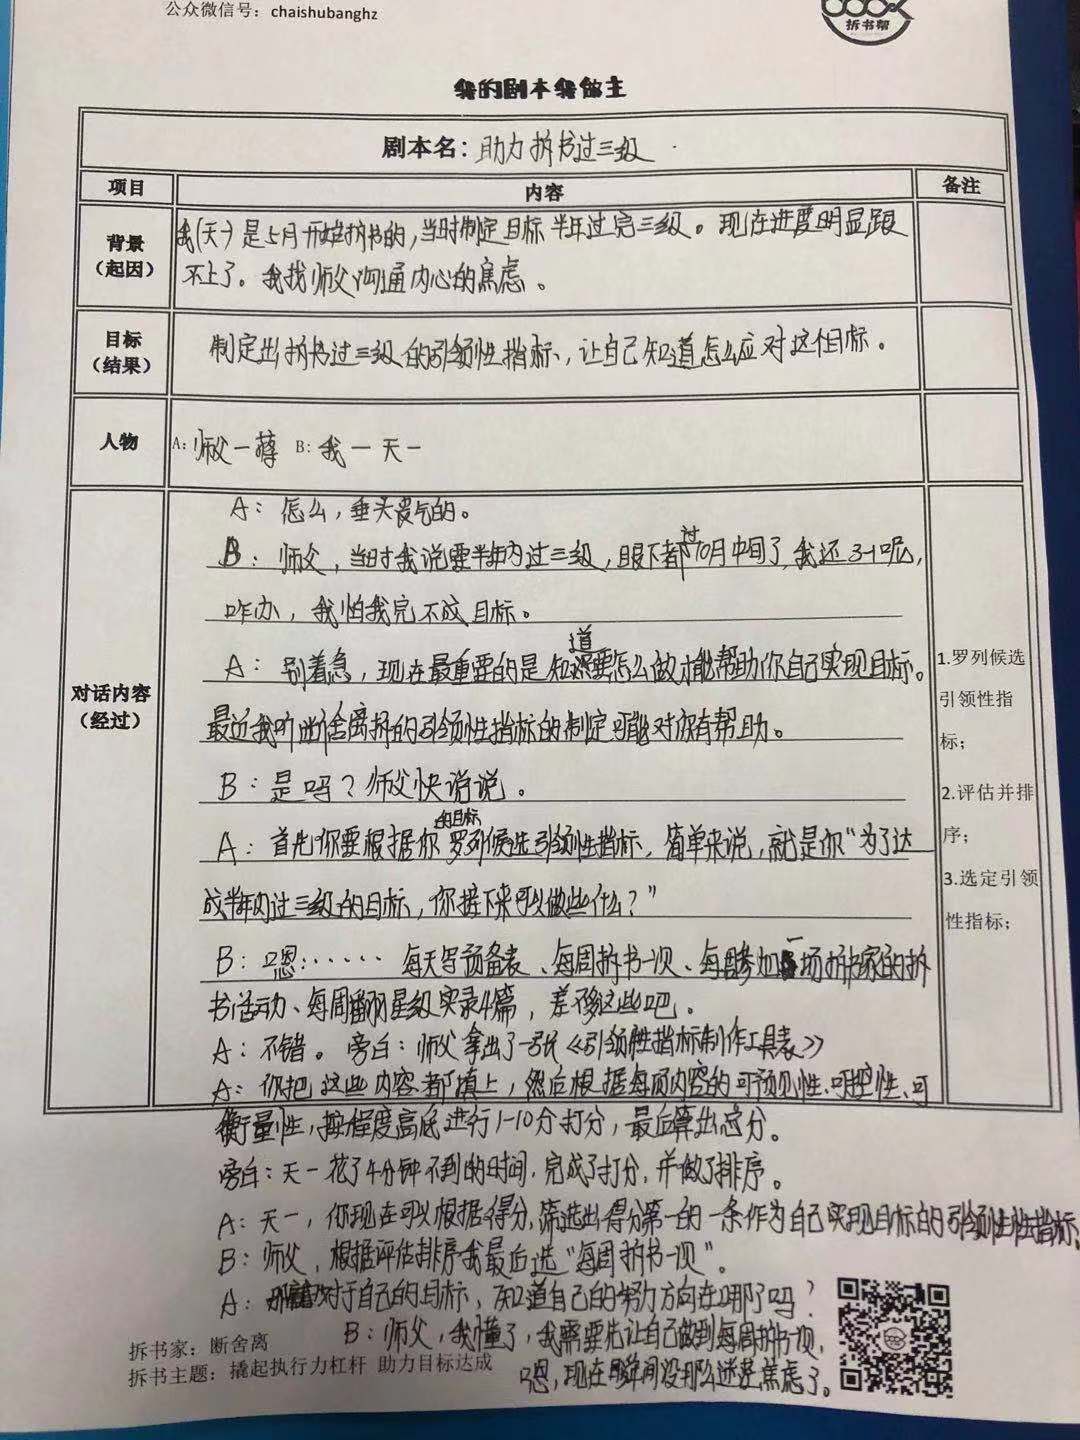 公众微信号：chaishubanghz
拆书帮
我的剧本我做主
剧本名：助力拆书过三级
项目 内容 备注
背景
（起因）
我（天）是5月开始拆书的，当时制定目标半年过完三级。现在进度明显跟
不上了。我找师父沟通内心的焦虑。
目标
（结果）
制定出拆书过三级的引领性指标，让自己知道怎么应对这个目标。
人物
A：师父一薛 B：我一天一
对话内容
（经过）
A：怎么，垂头丧气的。
B：师父，当时我说要半年内过三级，眼下都过10月中间了，我还3-1呢，
咋办，我怕我完不成目标。
A：别着急，现在最重要的是知道要怎么做才能帮助你自己实现目标。
最近我听断舍离拆的引领性指标的制定可能对你有帮助。
B：是吗？师父快说说。
A：首先你要根据你的目标罗列候选引领性指标，简单来说，就是你“为了达
成半年内过三级的目标，你接下来可以做些什么？”
B：嗯······ 每天写预备表、每周拆书一次、每周参加一场拆书家的拆
书活动、每周翻星级实录4篇，差不多这些吧。
A：不错。旁白：师父拿出了一张《引领性指标制作工具表》
A：你把这些内容都填上，然后根据每项内容的可预见性、可控性、可
衡量性，按程度高底进行1-10分打分，最后算出总分。
旁白：天一花了4分钟不到的时间，完成了打分，并做了排序。
A：天一，你现在可以根据得分，筛选出得分第一的一条作为自己实现目标的引领性指标；
B：师父，根据评估排序我最后选“每周拆书一次”。
A：对于自己的目标，知道自己的努力方向在哪了吗？
B：师父，我懂了，我需要先让自己做到每周拆书一次，
嗯，现在瞬间没那么迷茫焦虑了。
1.罗列候选
引领性指
标；
2.评估并排
序；
3.选定引领
性指标；
拆书家：断舍离
拆书主题：撬起执行力杠杆 助力目标达成